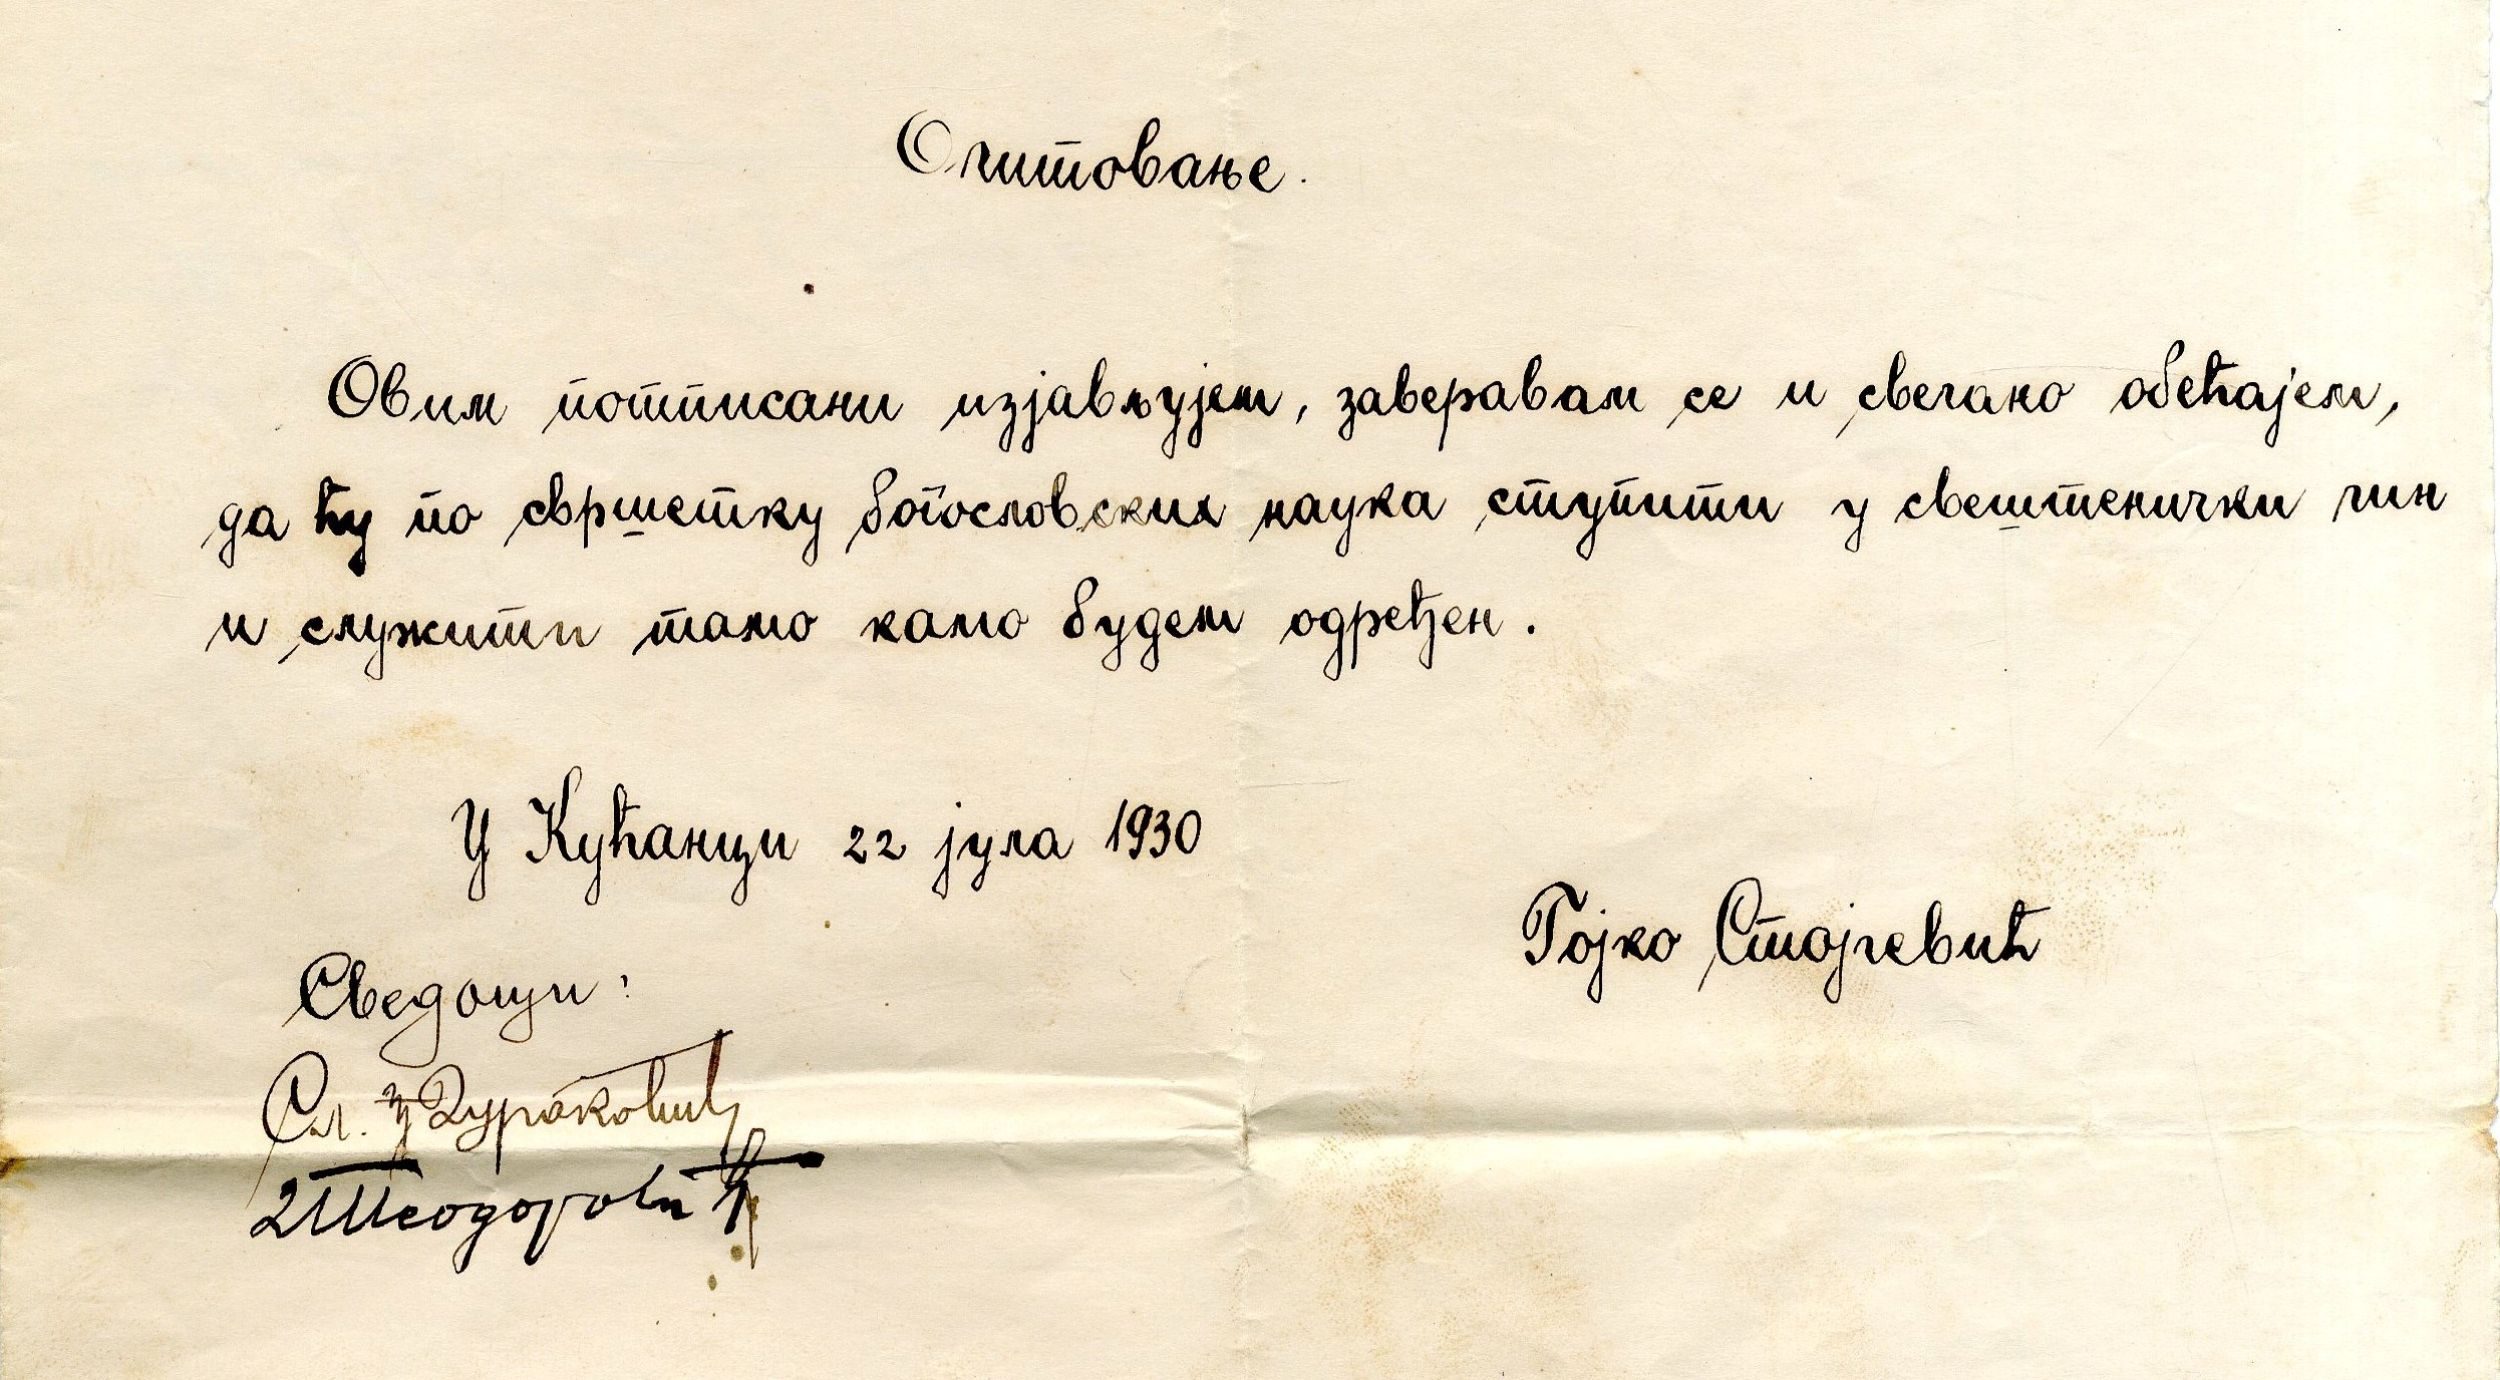 Очитовање.
Овим потписани изјављујем, заверавам се и свечано обећајем,
да ћу по свршетку богословских наука ступити у свештенички чин
и служити тамо камо будем одређен.
У Кућанци 22 јула 1930
Гојко Стојчевић
Сведоци:
Сл. Дураковић
Теодоровић